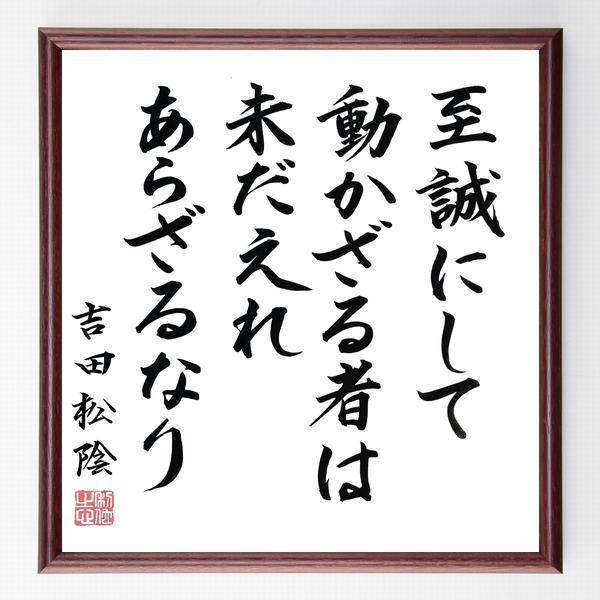 至誠にして
動かざる者は
未だえれ
あらざるなり
吉田松陰